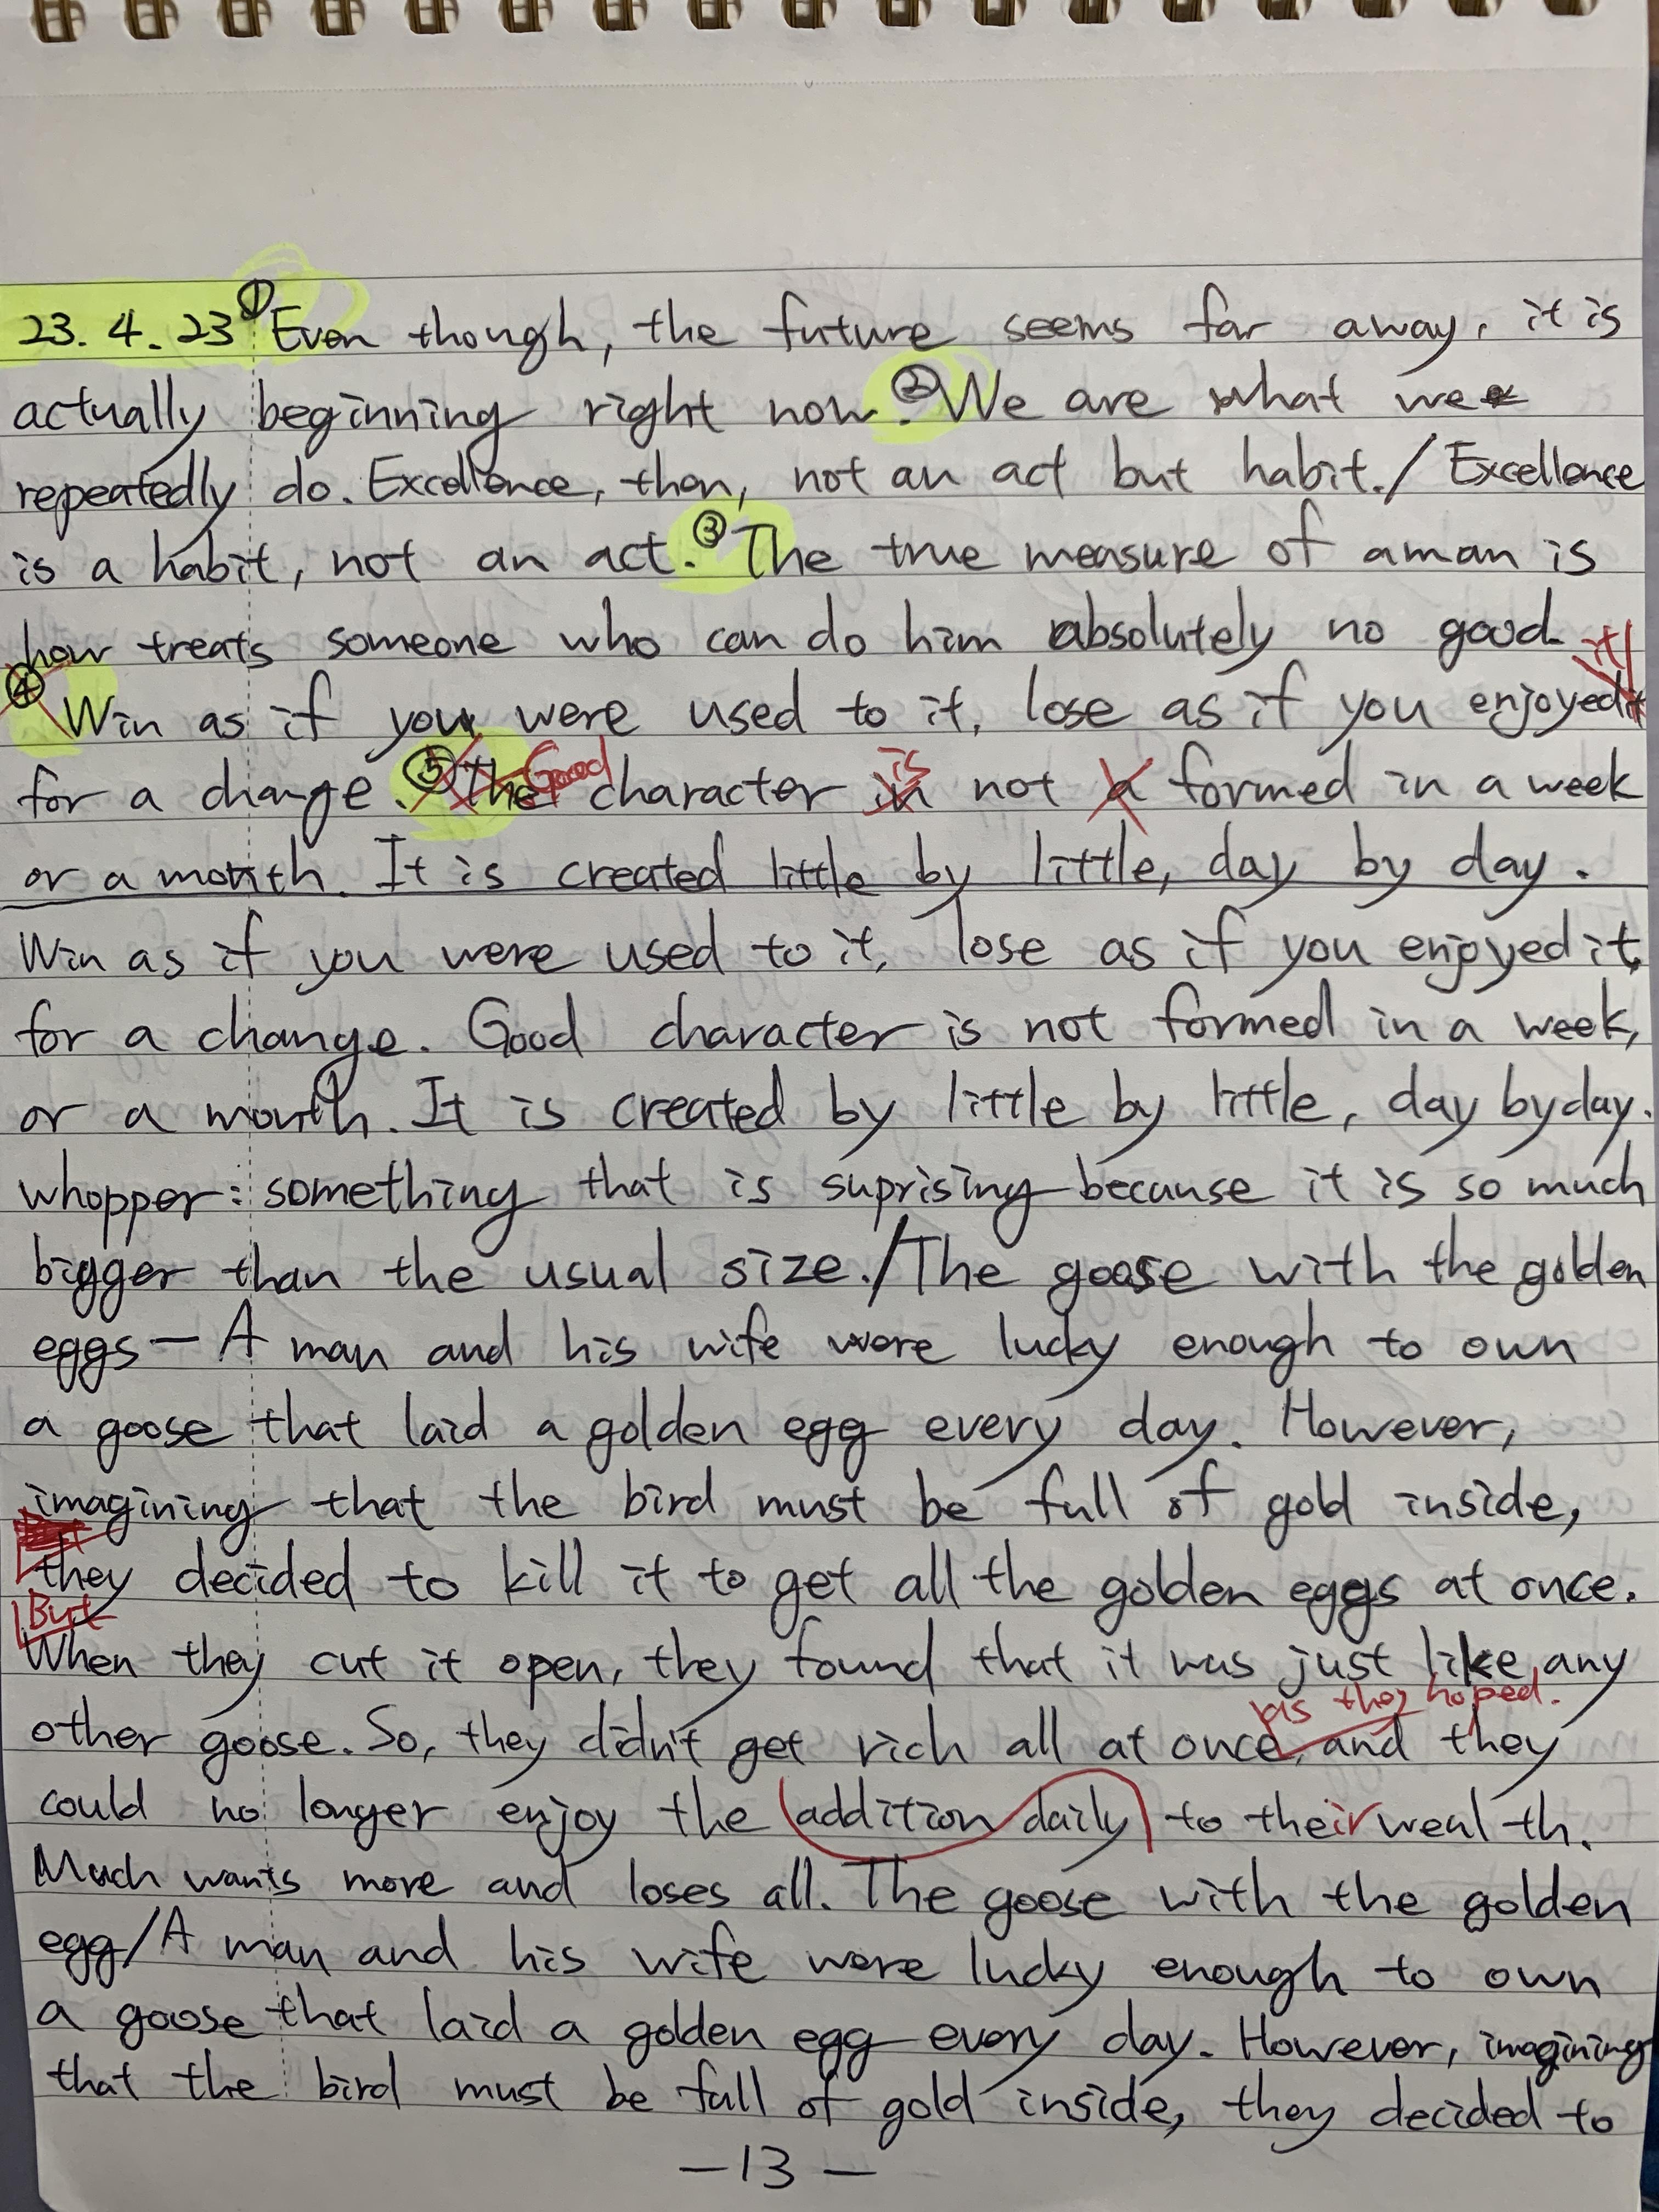 23.4.23 ① Even though, the future seems far away, it is
actually beginning right now. ② We are what we
repeatedly do. Excellence, then, not an act but habit. / Excellence
is a habit, not an act. ③ The true measure of a man is
how treats someone who can do him absolutely no good.
it
④ Win as if you were used to it, lose as if you enjoyed it
Good is
for a change. ⑤ The character in not a formed in a week
or a month. It is created little by little, day by day.
Win as if you were used to it, lose as if you enjoyed it,
for a change. Good character is not formed in a week,
or a month. It is created by little by little, day by day.
whopper: something that is suprising because it is so much
bigger than the usual size. / The goose with the golden
eggs — A man and his wife were lucky enough to own
a goose that laid a golden egg every day. However,
imagining that the bird must be full of gold inside,
they decided to kill it to get all the golden eggs at once.
But
When they cut it open, they found that it was just like any
as they hoped.
other goose. So, they didn't get rich all at once, and they
could no longer enjoy the addition daily to their wealth.
Much wants more and loses all. The goose with the golden
egg/A man and his wife were lucky enough to own
a goose that laid a golden egg every day. However, imagining
that the bird must be full of gold inside, they decided to
—13—